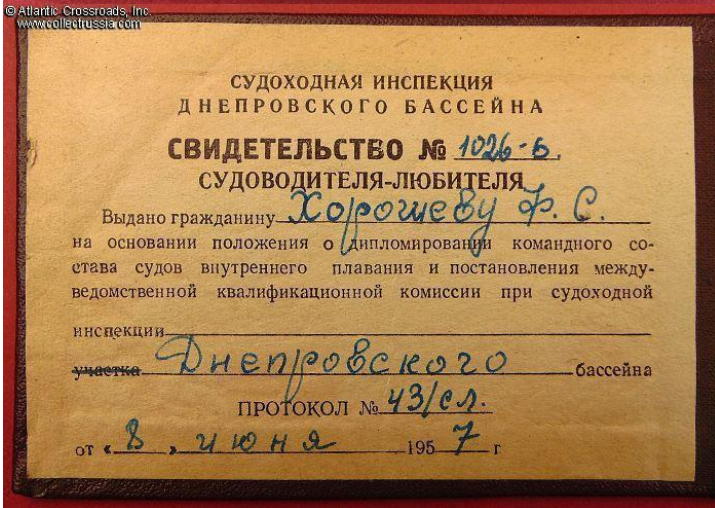 © Atlantic Crossroads, Inc.
www.collectrussia.com
СУДОХОДНАЯ ИНСПЕКЦИЯ
ДНЕПРОВСКОГО БАССЕЙНА
СВИДЕТЕЛЬСТВО № 1026-Б.
СУДОВОДИТЕЛЯ-ЛЮБИТЕЛЯ
Выдано гражданину Хорошеву Ф. С.
на основании положения о дипломировании командного со-
става судов внутреннего плавания и постановления между-
ведомственной квалификационной комиссии при судоходной
инспекции
участка Днепровского бассейна
ПРОТОКОЛ № 43/сл.
от «8» июня 1957 г